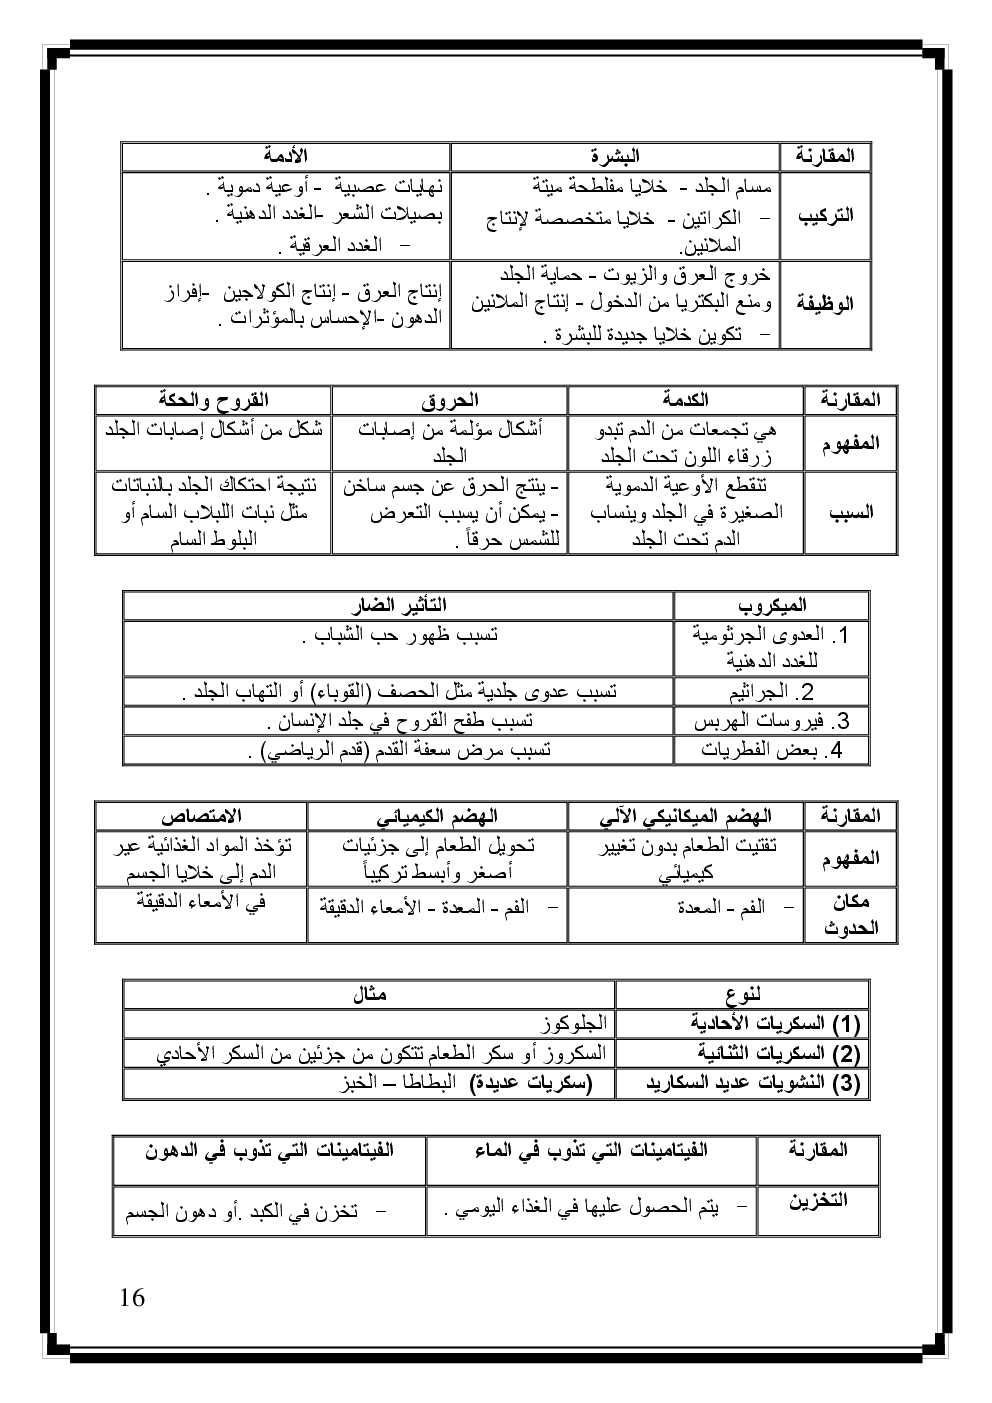 المقارنة البشرة الأدمة
التركيب
مسام الجلد - خلايا مفلطحة ميتة
- الكراتين - خلايا متخصصة لإنتاج
الملانين.
نهايات عصبية - أوعية دموية .
بصيلات الشعر -الغدد الدهنية .
- الغدد العرقية .
الوظيفة
خروج العرق والزيوت - حماية الجلد
ومنع البكتريا من الدخول - إنتاج الملانين
- تكوين خلايا جديدة للبشرة .
إنتاج العرق - إنتاج الكولاجين -إفراز
الدهون -الإحساس بالمؤثرات .
المقارنة الكدمة الحروق القروح والحكة
المفهوم
هي تجمعات من الدم تبدو
زرقاء اللون تحت الجلد
أشكال مؤلمة من إصابات
الجلد
شكل من أشكال إصابات الجلد
السبب
تنقطع الأوعية الدموية
الصغيرة في الجلد وينساب
الدم تحت الجلد
- ينتج الحرق عن جسم ساخن
- يمكن أن يسبب التعرض
للشمس حرقاً .
نتيجة احتكاك الجلد بالنباتات
مثل نبات اللبلاب السام أو
البلوط السام
الميكروب التأثير الضار
1. العدوى الجرثومية
للغدد الدهنية
تسبب ظهور حب الشباب .
2. الجراثيم تسبب عدوى جلدية مثل الحصف (القوباء) أو التهاب الجلد .
3. فيروسات الهربس تسبب طفح القروح في جلد الإنسان .
4. بعض الفطريات تسبب مرض سعفة القدم (قدم الرياضي) .
المقارنة الهضم الميكانيكي الآلي الهضم الكيميائي الامتصاص
المفهوم
تفتيت الطعام بدون تغيير
كيميائي
تحويل الطعام إلى جزئيات
أصغر وأبسط تركيباً
تؤخذ المواد الغذائية عبر
الدم إلى خلايا الجسم
مكان
الحدوث
- الفم - المعدة
- الفم - المعدة - الأمعاء الدقيقة
في الأمعاء الدقيقة
لنوع مثال
(1) السكريات الأحادية الجلوكوز
(2) السكريات الثنائية السكروز أو سكر الطعام تتكون من جزئين من السكر الأحادي
(3) النشويات عديد السكاريد (سكريات عديدة) البطاطا – الخبز
المقارنة الفيتامينات التي تذوب في الماء الفيتامينات التي تذوب في الدهون
التخزين - يتم الحصول عليها في الغذاء اليومي . - تخزن في الكبد .أو دهون الجسم
16